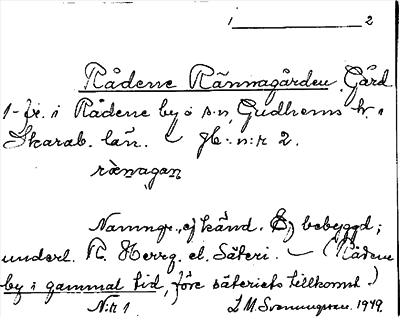 1 2
Rådene Rännagården Gård
1-fr. i Rådene by o s:n, Gudhems h.
Skarab. län. — Jb: n:r 2.
rànagan
Namngr., ej känd. Ej bebyggd;
underl. R. Herrg. el. Säteri. — (Rådene
by i gammal tid, före säteriets tillkomst.)
N:r 1 J. M. 1949.